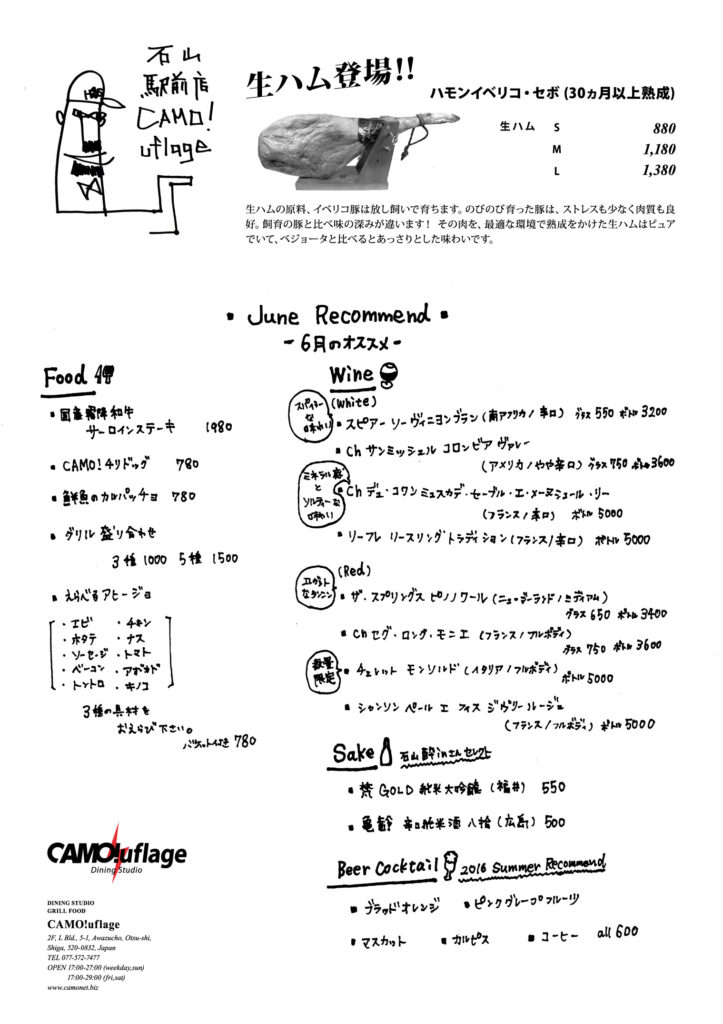 石山
駅前店
CAMO!
uflage
生ハム登場!!
ハモンイベリコ・セボ (30ヵ月以上熟成)
生ハム S 880
M 1,180
L 1,380
生ハムの原料、イベリコ豚は放し飼いで育ちます。のびのび育った豚は、ストレスも少なく肉質も良
好。飼育の豚と比べ味の深みが違います! その肉を、最適な環境で熟成をかけた生ハムはピュア
でいて、ベジョータと比べるとあっさりとした味わいです。
▪ June Recommend ▪
- 6月のオススメ -
Food
▪ 国産霜降和牛
サーロインステーキ 1980
▪ CAMO!チリドッグ 780
▪ 鮮魚のカルパッチョ 780
▪ グリル盛り合わせ
3種 1000 5種 1500
▪ えらべるアヒージョ
・エビ ・チキン
・ホタテ ・ナス
・ソーセージ ・トマト
・ベーコン ・アボカド
・トントロ ・キノコ
3種の具材を
おえらび下さい。
バケット付き 780
Wine
(White)
スパイシー
な
味わい
▪ スピアー ソーヴィニヨンブラン (南アフリカ / 辛口) グラス 550 ボトル 3200
▪ Ch サンミッシェル コロンビア ヴァレー
(アメリカ / やや辛口) グラス 750 ボトル 3600
ミネラル感
と
ソルティーな
味わい
▪ Ch デュ・コワン ミュスカデ・セーブル・エ・メーヌ シュール・リー
(フランス / 辛口) ボトル 5000
▪ リーフレ リースリング トラディション (フランス / 辛口) ボトル 5000
(Red)
エレガント
なタンニン
▪ ザ・スプリングス ピノノワール (ニュージーランド / ミディアム)
グラス 650 ボトル 3400
▪ Ch セグ・ロング・モニエ (フランス / フルボディ)
グラス 750 ボトル 3600
数量
限定
▪ チェレット モンソルド (イタリア / フルボディ)
ボトル 5000
▪ シャンソン ペール エ フィス ジヴリー ルージュ
(フランス / フルボディ) ボトル 5000
Sake 石山酔inさんセレクト
▪ 梵 GOLD 純米大吟醸 (福井) 550
▪ 亀齢 辛口純米酒 八拾 (広島) 500
Beer Cocktail 2016 Summer Recommend
▪ ブラッドオレンジ ▪ ピンクグレープフルーツ
▪ マスカット ▪ カルピス ▪ コーヒー all 600
CAMO!uflage
Dining Studio
DINING STUDIO
GRILL FOOD
CAMO!uflage
2F, I. Bld., 5-1, Awazucho, Otsu-shi,
Shiga, 520-0832, Japan
TEL 077-572-7477
OPEN 17:00-27:00 (weekday,sun)
17:00-29:00 (fri,sat)
www.camonet.biz